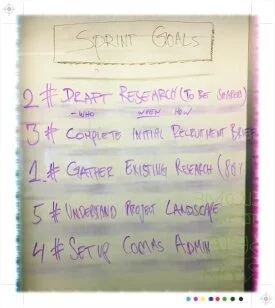 SPRINT GOALS
2 # DRAFT RESEARCH (TO BE SHARED)
- WHO WHEN HOW
3 # COMPLETE INITIAL RECRUITMENT BRIEF
1 # GATHER EXISTING RESEARCH (80%
5 # UNDERSTAND PROJECT LANDSCAPE
4 # SETUP COMMS ADMIN